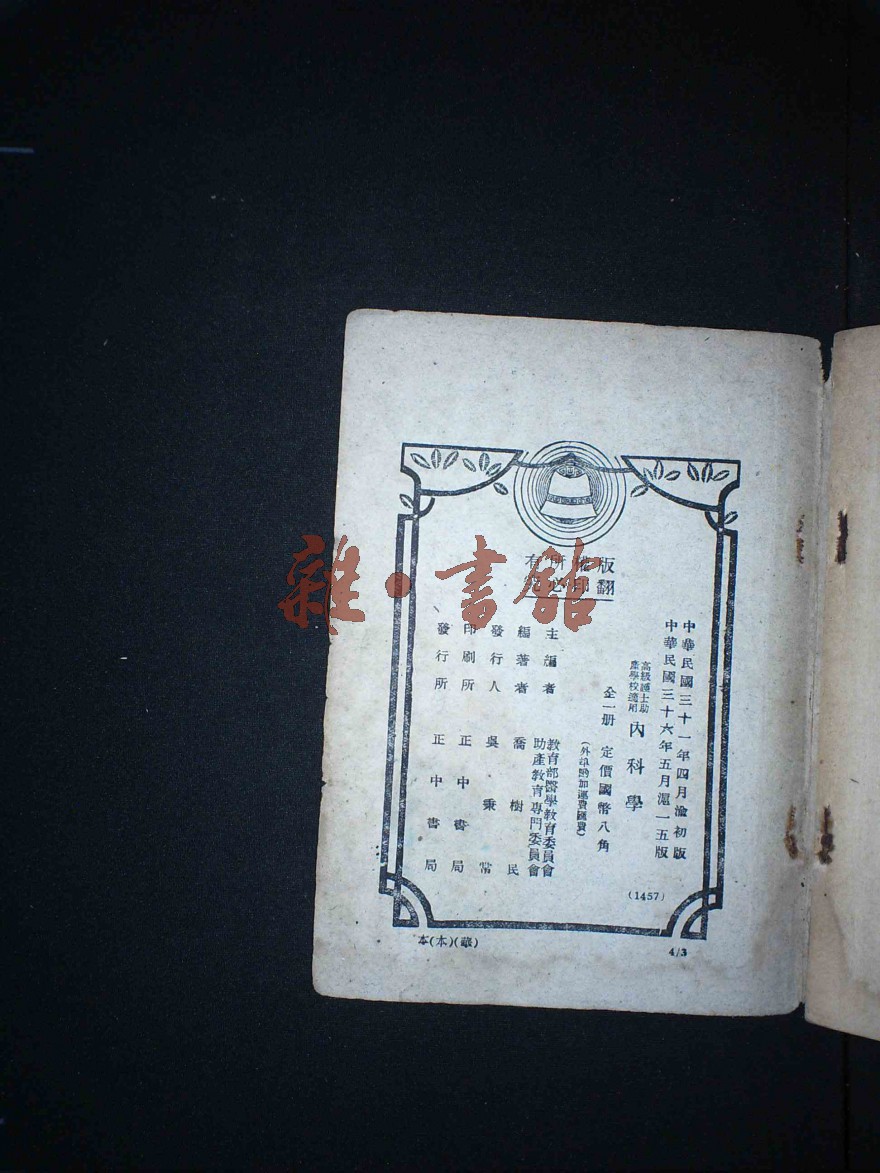 版權所有
翻印必究
中華民國三十一年四月渝初版
中華民國三十六年五月滬一五版
高級護士助
產學校適用
內科學
(1457)
全一冊 定價國幣八角
(外埠酌加運費匯費)
主編者
教育部醫學教育委員會
助產教育專門委員會
編著者 喬樹民
發行人 吳秉常
印刷所 正中書局
發行所 正中書局
本(本)(蘇)
4/3
雜·書館